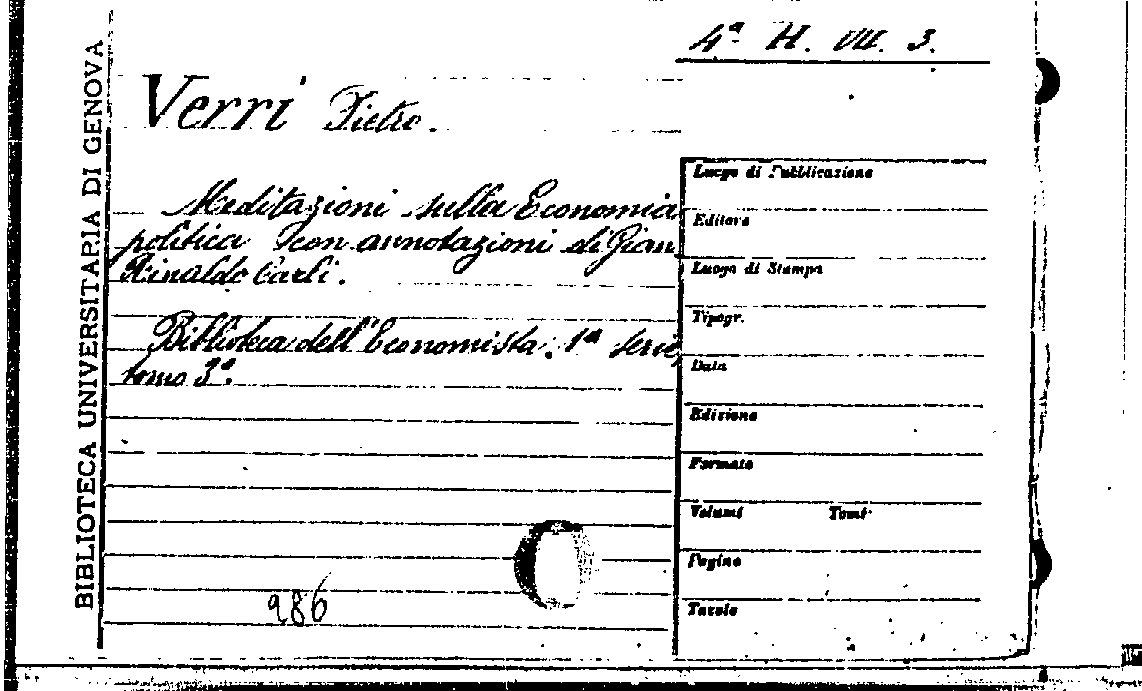 4ª H. VII. 3.
Verri Pietro.
Meditazioni sulla Economia
politica con annotazioni di Gian
Rinaldo Carli.
Biblioteca dell'Economista. 1ª serie,
tomo 3º.
986
BIBLIOTECA UNIVERSITARIA DI GENOVA
Luogo di Pubblicazione
Editore
Luogo di Stampa
Tipogr.
Data
Edizione
Formato
Volumi Tomi
Pagine
Tavole